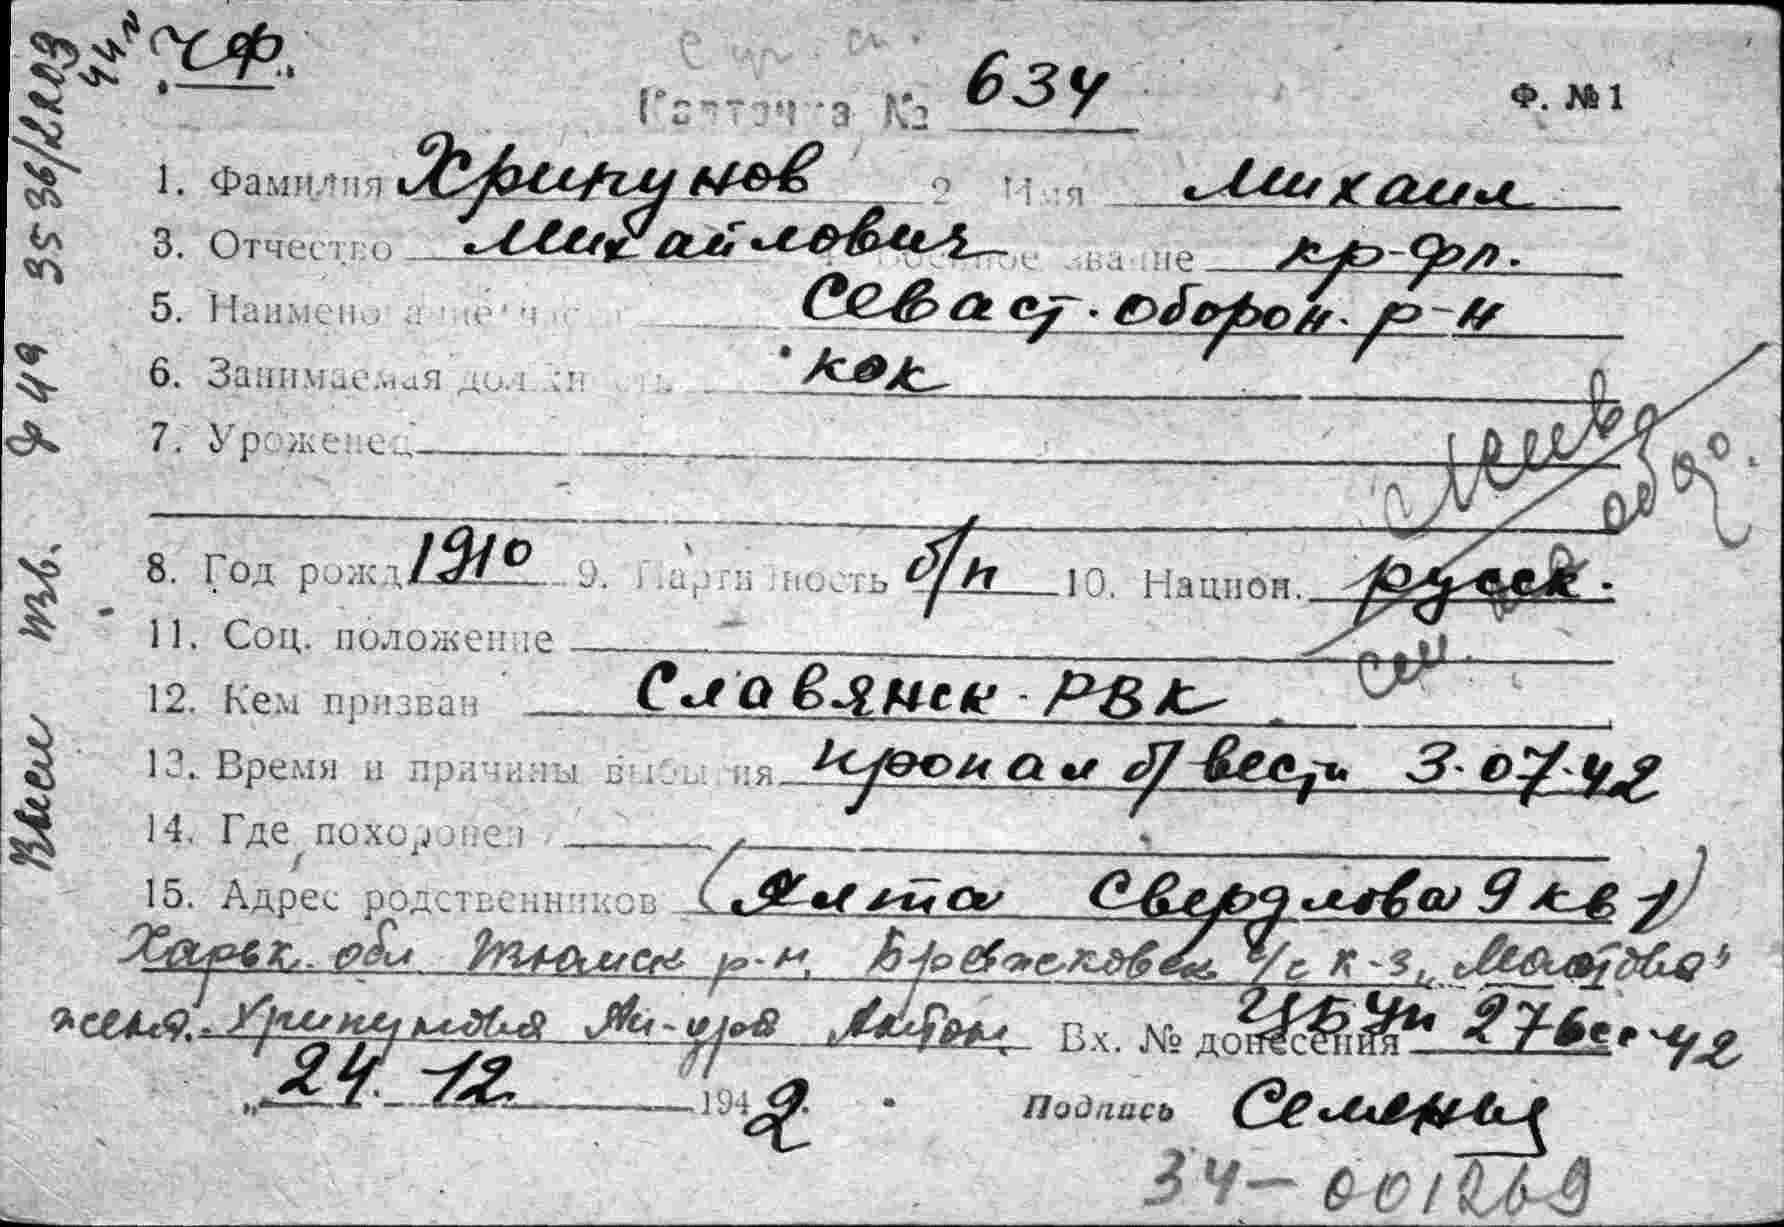 „ЧФ"
Карточка № 634
Ф. № 1
1. Фамилия Хрипунов 2 Имя Михаил
3. Отчество Михайлович военное звание кр-фл.
5. Наименование части Севаст. оборон. р-н
6. Занимаемая должность кок
7. Уроженец
8. Год рожд 1910 9. Партийность б/п 10. Национ. русск.
11. Соц. положение
12. Кем призван Славянск. РВК
13. Время и причины выбытия пропал б/вести 3.07.42
14. Где похоронен
15. Адрес родственников (Ялта Свердлова 9 кв 1)
Харьк. обл. р-н, с/с к-з
жена. Хрипунова Ал-дра Антон. Вх. № донесения 276сс-42
„24. 12. 1942 Подпись
34-001269
Высл изв. ф 49 3536/
44 г